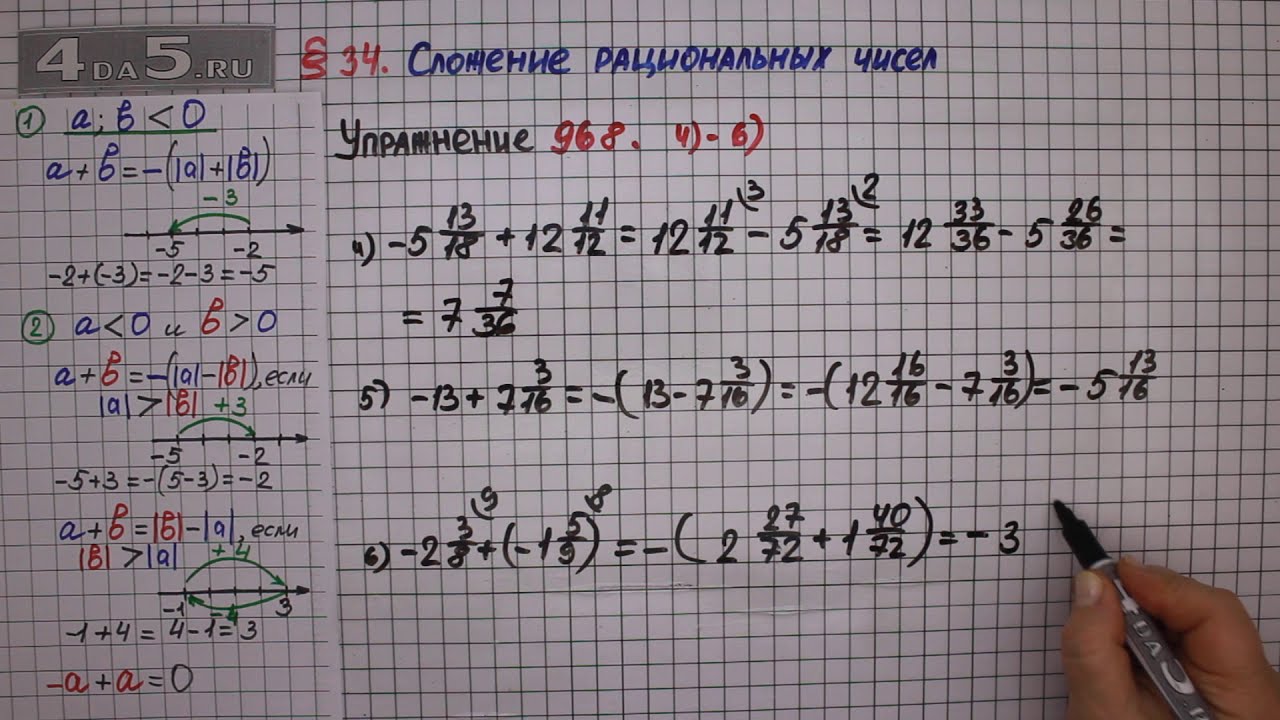 4DA5.RU
§ 34. Сложение рациональных чисел
① a; b < 0
a + b = -(|a| + |b|)
-3
-5 -2
-2+(-3)=-2-3=-5
② a < 0 и b > 0
a + b = -(|a| - |b|), если
|a| > |b|
+3
-5 -2
-5+3=-(5-3)=-2
a + b = |b| - |a|, если
|b| > |a|
+4
-1 3
-4
-1+4 = 4-1 = 3
-a + a = 0
Упражнение 968. 4)-6)
4) -5 13/18 + 12 11/12 = 12 11/12 \3 - 5 13/18 \2 = 12 33/36 - 5 26/36 =
= 7 7/36
5) -13 + 7 3/16 = -(13 - 7 3/16) = -(12 16/16 - 7 3/16) = -5 13/16
6) -2 3/8 \9 + (-1 5/9 \8) = -(2 27/72 + 1 40/72) = -3
4DA5